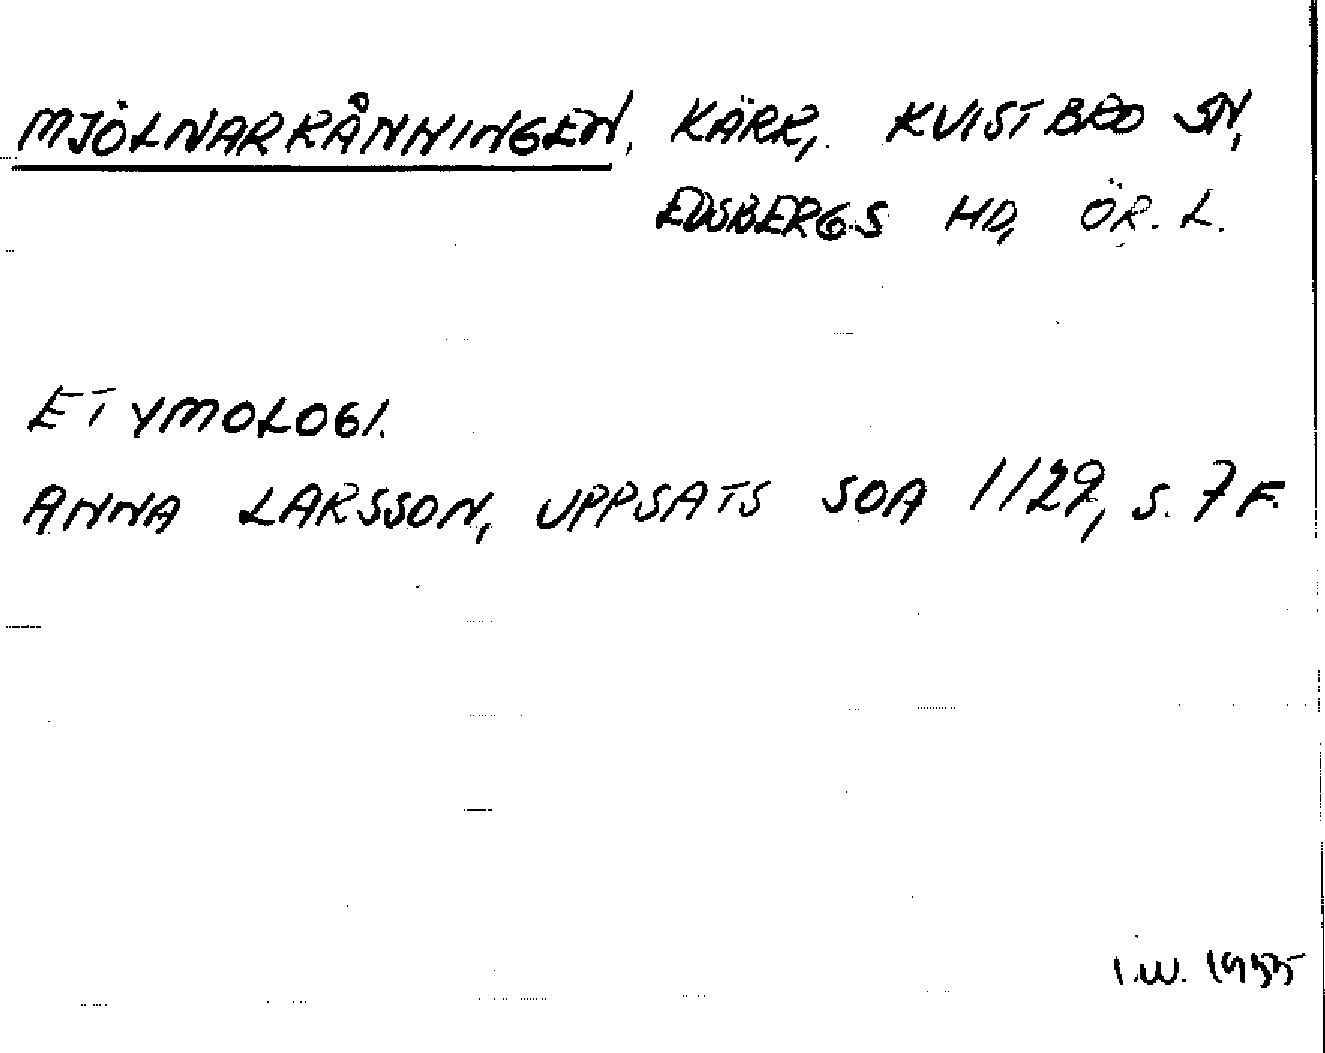 MJÖLNARRÅNNINGEN, KÄRR, KVISTBRO SN,
EDSBERGS HD, ÖR. L.
ETYMOLOGI.
ANNA LARSSON, UPPSATS SOA 1129, S. 7 F.
I.W. 1955